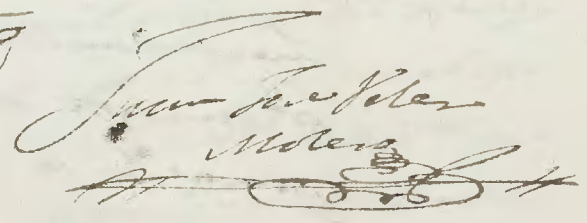 Juan José Velez
Molero